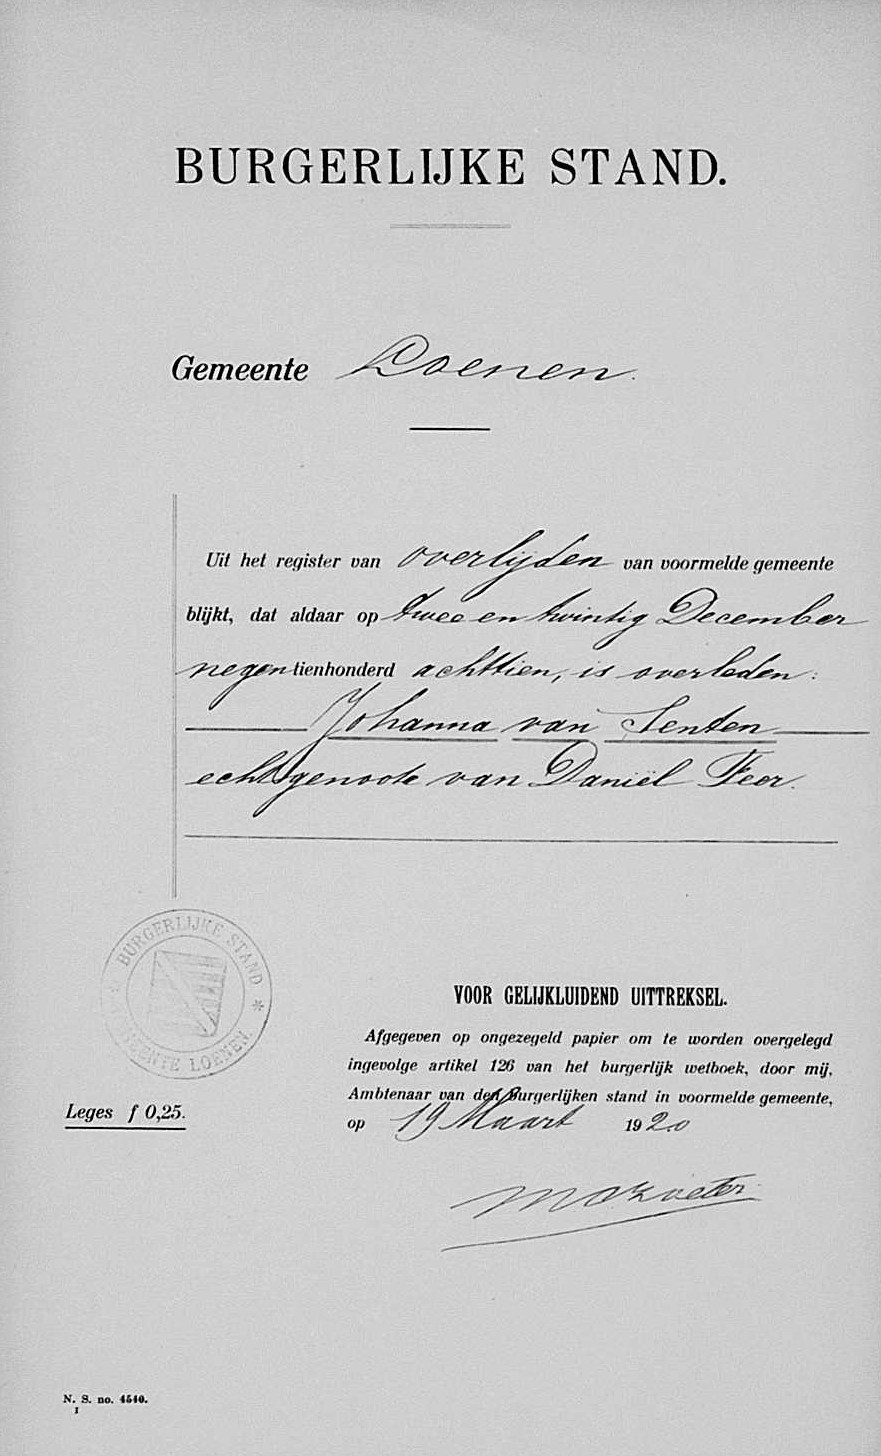 BURGERLIJKE STAND.
Gemeente Loenen.
Uit het register van overlijden van voormelde gemeente
blijkt, dat aldaar op twee en twintig December
negentienhonderd achttien, is overleden:
Johanna van Senten
echtgenoote van Daniël Feer.
BURGERLIJKE STAND
* GEMEENTE LOENEN. *
VOOR GELIJKLUIDEND UITTREKSEL.
Afgegeven op ongezegeld papier om te worden overgelegd
ingevolge artikel 126 van het burgerlijk wetboek, door mij,
Ambtenaar van den Burgerlijken stand in voormelde gemeente,
Leges f 0,25.
op 19 Maart 1920
N. S. no. 4540.
I